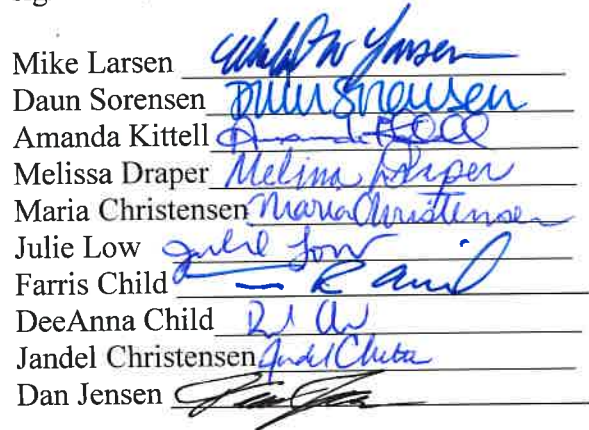 Mike Larsen
Daun Sorensen Daun Sorensen
Amanda Kittell Amanda
Melissa Draper Melissa Draper
Maria Christensen Maria Christensen
Julie Low Julie Low
Farris Child
DeeAnna Child
Jandel Christensen Jandel
Dan Jensen